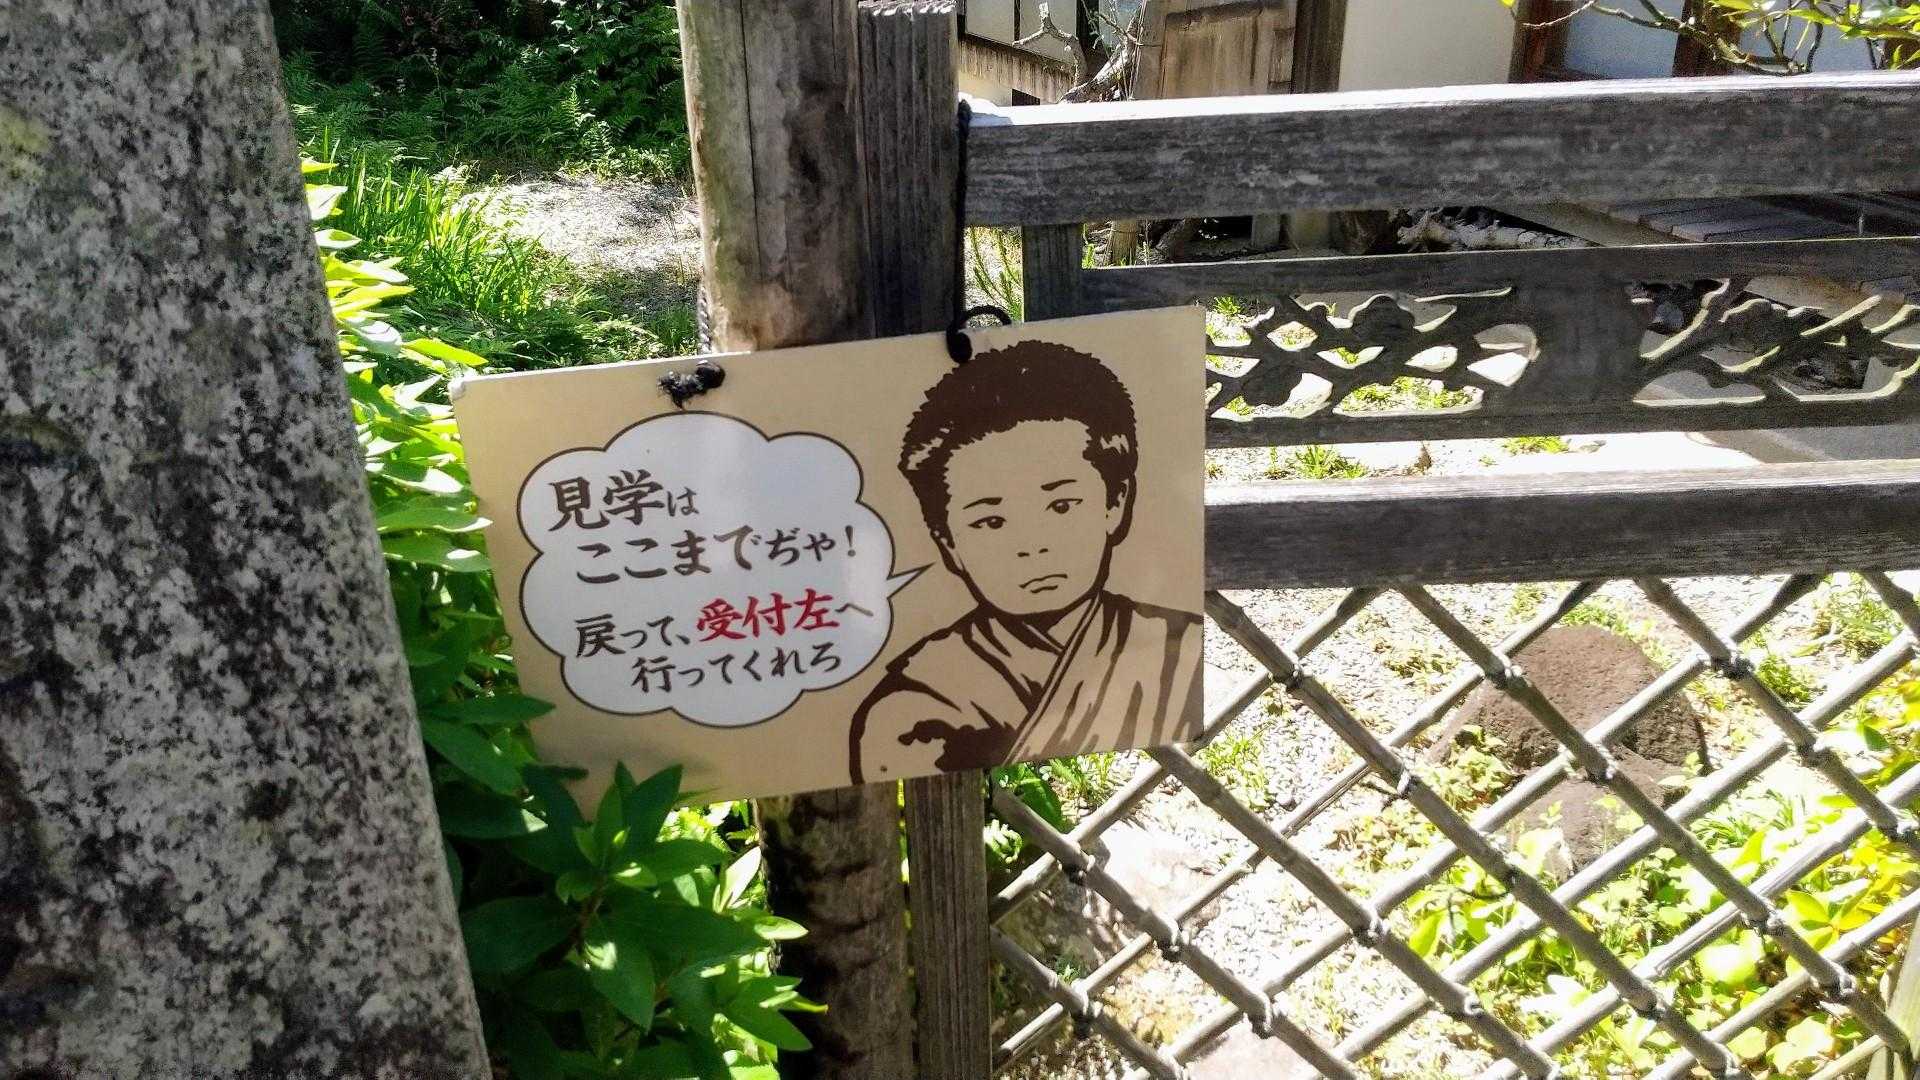 見学は
ここまでぢゃ！
戻って、受付左へ
行ってくれろ